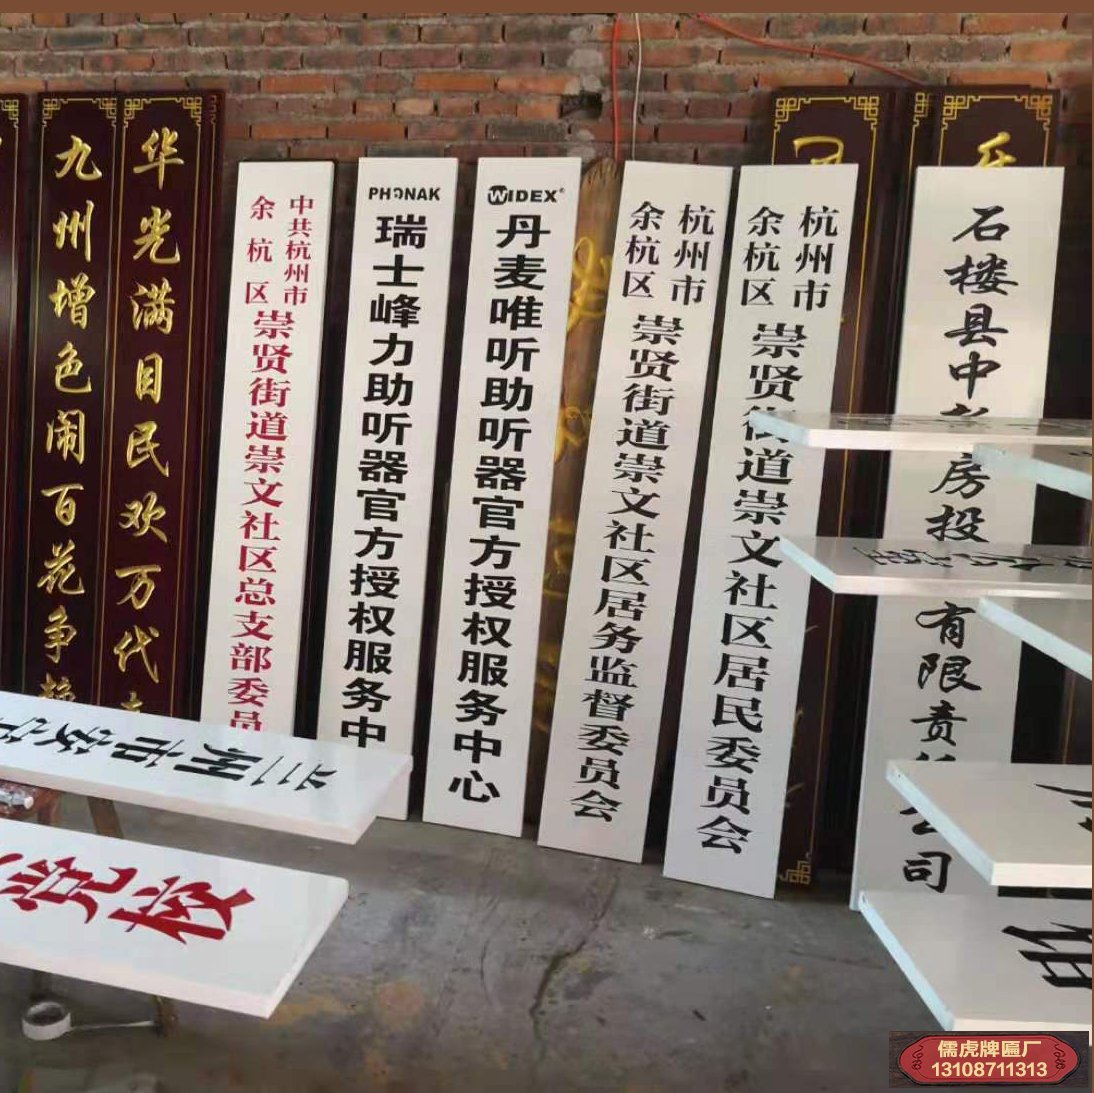 华光满目民欢万代
九州增色闹百花争艳
中共杭州市
余杭区
崇贤街道崇文社区总支部委员
PHONAK
瑞士峰力助听器官方授权服务中
WIDEX®
丹麦唯听助听器官方授权服务中心
杭州市
余杭区
崇贤街道崇文社区居务监督委员会
杭州市
余杭区
崇贤街道崇文社区居民委员会
石楼县中
房投
有限责
公司
兰州市安宁
党校
儒虎牌匾厂
13108711313